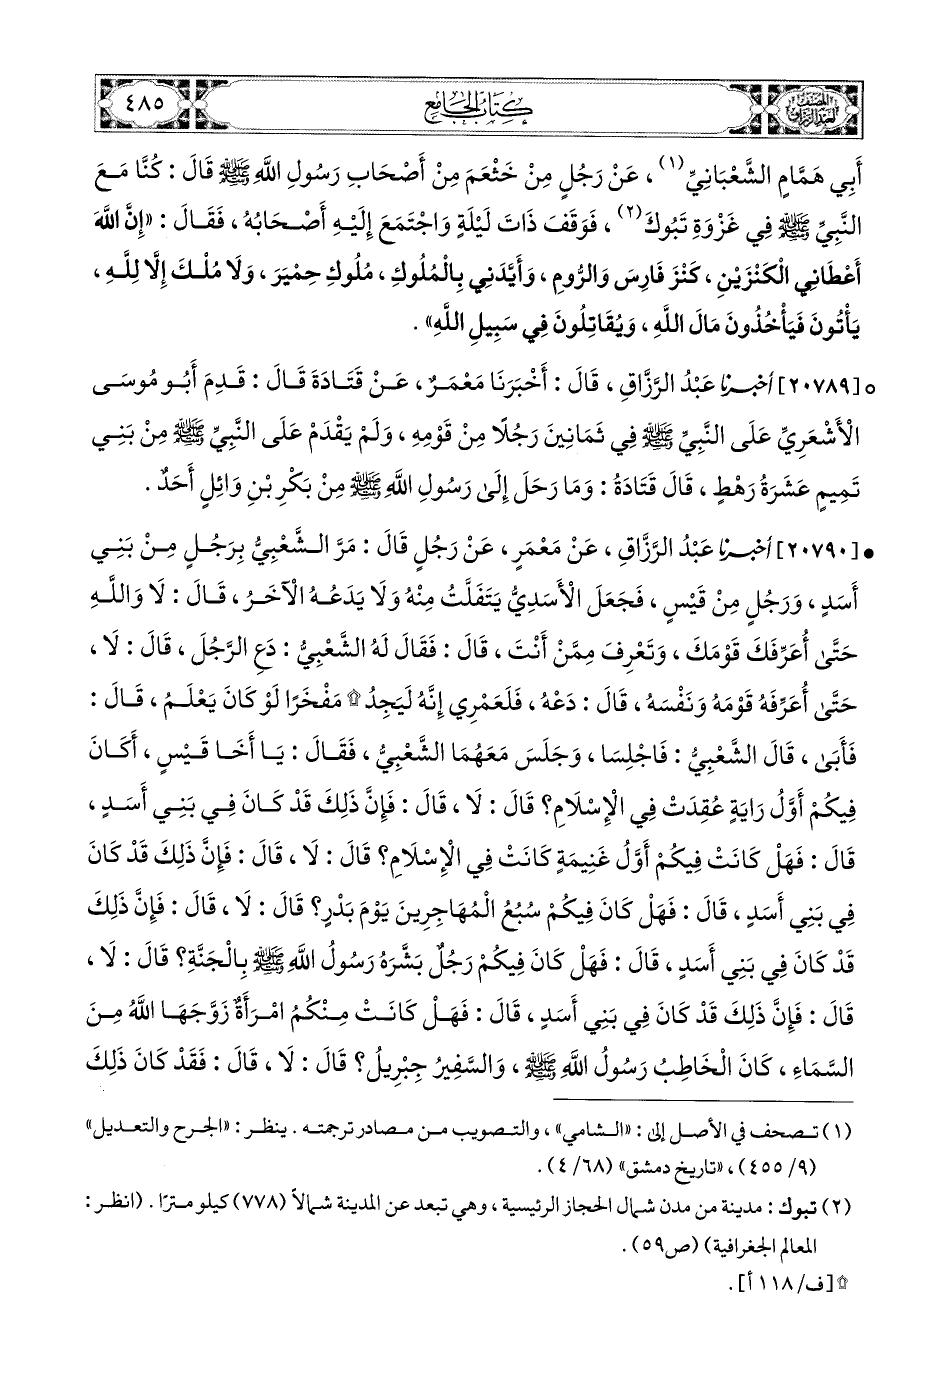 المصنف لعبد الرزاق
كتاب الجامع
٤٨٥
أَبِي هَمَّامٍ الشَّعْبَانِيِّ(١)، عَنْ رَجُلٍ مِنْ خَثْعَمَ مِنْ أَصْحَابِ رَسُولِ اللَّهِ ﷺ قَالَ: كُنَّا مَعَ
النَّبِيِّ ﷺ فِي غَزْوَةِ تَبُوكَ(٢)، فَوَقَفَ ذَاتَ لَيْلَةٍ وَاجْتَمَعَ إِلَيْهِ أَصْحَابُهُ، فَقَالَ: «إِنَّ اللَّهَ
أَعْطَانِي الْكَنْزَيْنِ، كَنْزَ فَارِسَ وَالرُّومِ، وَأَيَّدَنِي بِالْمُلُوكِ، مُلُوكِ حِمْيَرَ، وَلَا مُلْكَ إِلَّا لِلَّهِ،
يَأْتُونَ فَيَأْخُذُونَ مَالَ اللَّهِ، وَيُقَاتِلُونَ فِي سَبِيلِ اللَّهِ».
○ [٢٠٧٨٩] أخبرنا عَبْدُ الرَّزَّاقِ، قَالَ: أَخْبَرَنَا مَعْمَرٌ، عَنْ قَتَادَةَ قَالَ: قَدِمَ أَبُو مُوسَى
الْأَشْعَرِيِّ عَلَى النَّبِيِّ ﷺ فِي ثَمَانِينَ رَجُلًا مِنْ قَوْمِهِ، وَلَمْ يَقْدَمْ عَلَى النَّبِيِّ ﷺ مِنْ بَنِي
تَمِيمٍ عَشَرَةُ رَهْطٍ، قَالَ قَتَادَةُ: وَمَا رَحَلَ إِلَى رَسُولِ اللَّهِ ﷺ مِنْ بَكْرِ بْنِ وَائِلٍ أَحَدٌ.
● [٢٠٧٩٠] أخبرنا عَبْدُ الرَّزَّاقِ، عَنْ مَعْمَرٍ، عَنْ رَجُلٍ قَالَ: مَرَّ الشَّعْبِيُّ بِرَجُلٍ مِنْ بَنِي
أَسَدٍ، وَرَجُلٍ مِنْ قَيْسٍ، فَجَعَلَ الْأَسَدِيُّ يَتَفَلَّتُ مِنْهُ وَلَا يَدَعُهُ الْآخَرُ، قَالَ: لَا وَاللَّهِ
حَتَّى أُعَرِّفَكَ قَوْمَكَ، وَتَعْرِفَ مِمَّنْ أَنْتَ، قَالَ: فَقَالَ لَهُ الشَّعْبِيُّ: دَعِ الرَّجُلَ، قَالَ: لَا،
حَتَّى أُعَرِّفَهُ قَوْمَهُ وَنَفْسَهُ، قَالَ: دَعْهُ، فَلَعَمْرِي إِنَّهُ لَيَجِدُ ۩ مَفْخَرًا لَوْ كَانَ يَعْلَمُ، قَالَ:
فَأَبَى، قَالَ الشَّعْبِيُّ: فَاجْلِسَا، وَجَلَسَ مَعَهُمَا الشَّعْبِيُّ، فَقَالَ: يَا أَخَا قَيْسٍ، أَكَانَ
فِيكُمْ أَوَّلُ رَايَةٍ عُقِدَتْ فِي الْإِسْلَامِ؟ قَالَ: لَا، قَالَ: فَإِنَّ ذَلِكَ قَدْ كَانَ فِي بَنِي أَسَدٍ،
قَالَ: فَهَلْ كَانَتْ فِيكُمْ أَوَّلُ غَنِيمَةٍ كَانَتْ فِي الْإِسْلَامِ؟ قَالَ: لَا، قَالَ: فَإِنَّ ذَلِكَ قَدْ كَانَ
فِي بَنِي أَسَدٍ، قَالَ: فَهَلْ كَانَ فِيكُمْ سُبُعُ الْمُهَاجِرِينَ يَوْمَ بَدْرٍ؟ قَالَ: لَا، قَالَ: فَإِنَّ ذَلِكَ
قَدْ كَانَ فِي بَنِي أَسَدٍ، قَالَ: فَهَلْ كَانَ فِيكُمْ رَجُلٌ بَشَّرَهُ رَسُولُ اللَّهِ ﷺ بِالْجَنَّةِ؟ قَالَ: لَا،
قَالَ: فَإِنَّ ذَلِكَ قَدْ كَانَ فِي بَنِي أَسَدٍ، قَالَ: فَهَلْ كَانَتْ مِنْكُمُ امْرَأَةٌ زَوَّجَهَا اللَّهُ مِنَ
السَّمَاءِ، كَانَ الْخَاطِبُ رَسُولُ اللَّهِ ﷺ، وَالسَّفِيرُ جِبْرِيلُ؟ قَالَ: لَا، قَالَ: فَقَدْ كَانَ ذَلِكَ
(١) تصحف في الأصل إلى: «الشامي»، والتصويب من مصادر ترجمته. ينظر: «الجرح والتعديل»
(٩/ ٤٥٥)، «تاريخ دمشق» (٦٨/ ٤).
(٢) تبوك: مدينة من مدن شمال الحجاز الرئيسية، وهي تبعد عن المدينة شمالاً (٧٧٨) كيلو مترًا. (انظر:
المعالم الجغرافية) (ص٥٩).
۩ [ف/ ١١٨ أ].